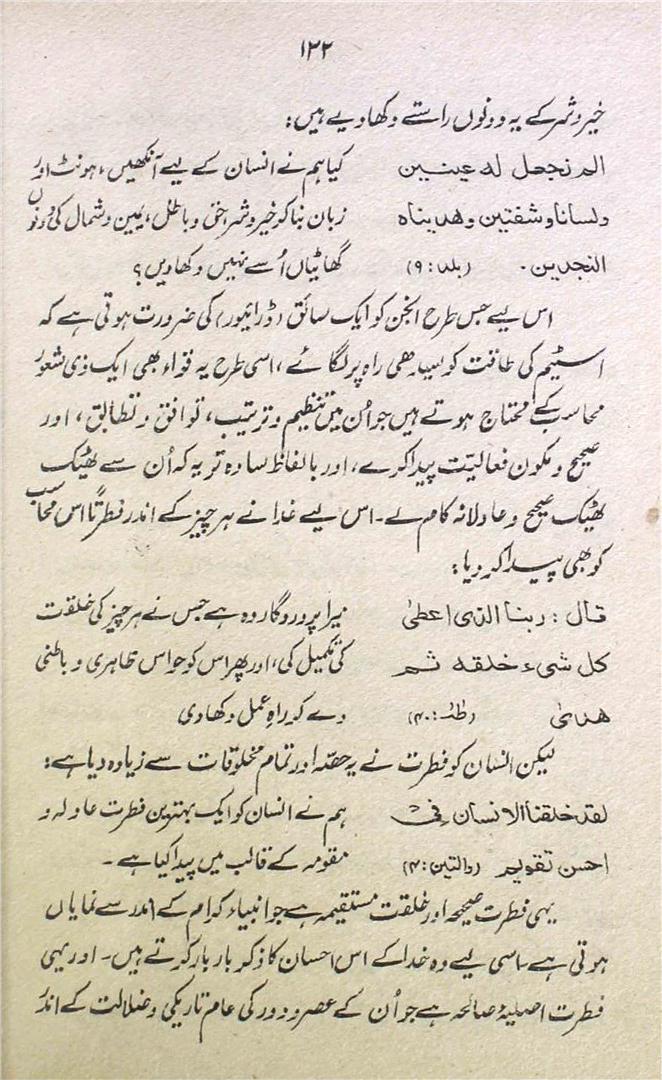 ۱۲۲
خیر و شر کے یہ دونوں راستے دکھا دیے ہیں:
الم نجعل له عینین
کیا ہم نے انسان کے لیے آنکھیں، ہونٹ اور
ولسانا وشفتین وھدیناہ
زبان بنا کر خیر و شر، حق و باطل، یمین و شمال کی دونوں
النجدین۔ (بلد: ۹)
گھاٹیاں اُسے نہیں دکھا دیں؟
اس لیے جس طرح انجن کو ایک سائق (ڈرائیور) کی ضرورت ہوتی ہے کہ
اسٹیم کی طاقت کو سیدھی راہ پر لگائے، اسی طرح یہ قواء بھی ایک ذی شعور
محاسب کے محتاج ہوتے ہیں جو اُن میں تنظیم و ترتیب، توافق و تطابق، اور
صحیح و مکون فعالیّت پیدا کرے، اور بالفاظ سادہ تر یہ کہ اُن سے ٹھیک
ٹھیک صحیح و عادلانہ کام لے۔ اس لیے خدا نے ہر چیز کے اندر فطرتاً اس محاسب
کو بھی پیدا کر دیا:
قال: ربنا الذی اعطیٰ
میرا پروردگار وہ ہے جس نے ہر چیز کی خلقت
کل شیء خلقه ثم
کی تکمیل کی، اور پھر اس کو حواس ظاہری و باطنی
ھدیٰ (طٰہٰ: ۴۰)
دے کر راہِ عمل دکھا دی
لیکن انسان کو فطرت نے یہ حصّہ اور تمام مخلوقات سے زیادہ دیا ہے:
لقد خلقنا الانسان فی
ہم نے انسان کو ایک بہترین فطرت عادلہ و
احسن تقویم (والتین: ۴)
مقومہ کے قالب میں پیدا کیا ہے۔
یہی فطرت صحیحہ اور خلقت مستقیمہ ہے جو انبیاء کرام کے اندر سے نمایاں
ہوتی ہے۔ اسی لیے وہ خدا کے اس احسان کا ذکر بار بار کرتے ہیں۔ اور یہی
فطرت اصلیۂ صالحہ ہے جو اُن کے عصر و دور کی عام تاریکی و ضلالت کے اندر